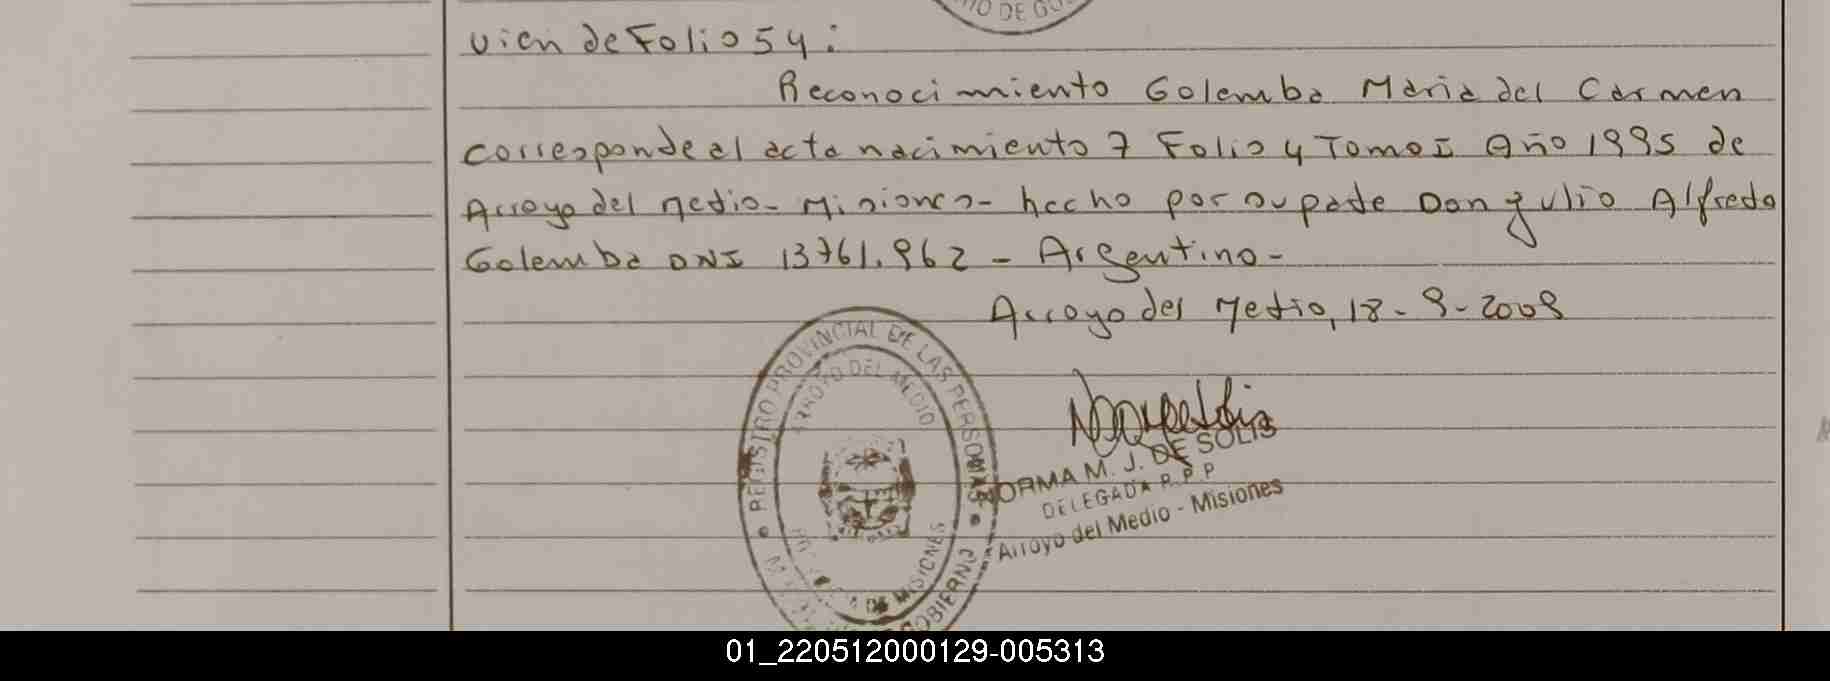 IO DE GO
vien de Folio 54:
Reconocimiento Golemba Maria del Carmen
corresponde al acta nacimiento 7 Folio 4 Tomo I Año 1995 de
Arroyo del Medio - Misiones - hecho por su pade Don Julio Alfredo
Golemba DNI 13761.962 - Argentino -
Arroyo del Medio, 18 - 9 - 2009
REGISTRO PROVINCIAL DE LAS PERSONAS
ARROYO DEL MEDIO
DE MISIONES
GOBIERNO
NORMA M. J. DE SOLIS
DELEGADA R.P.P
Arroyo del Medio - Misiones
01_220512000129-005313